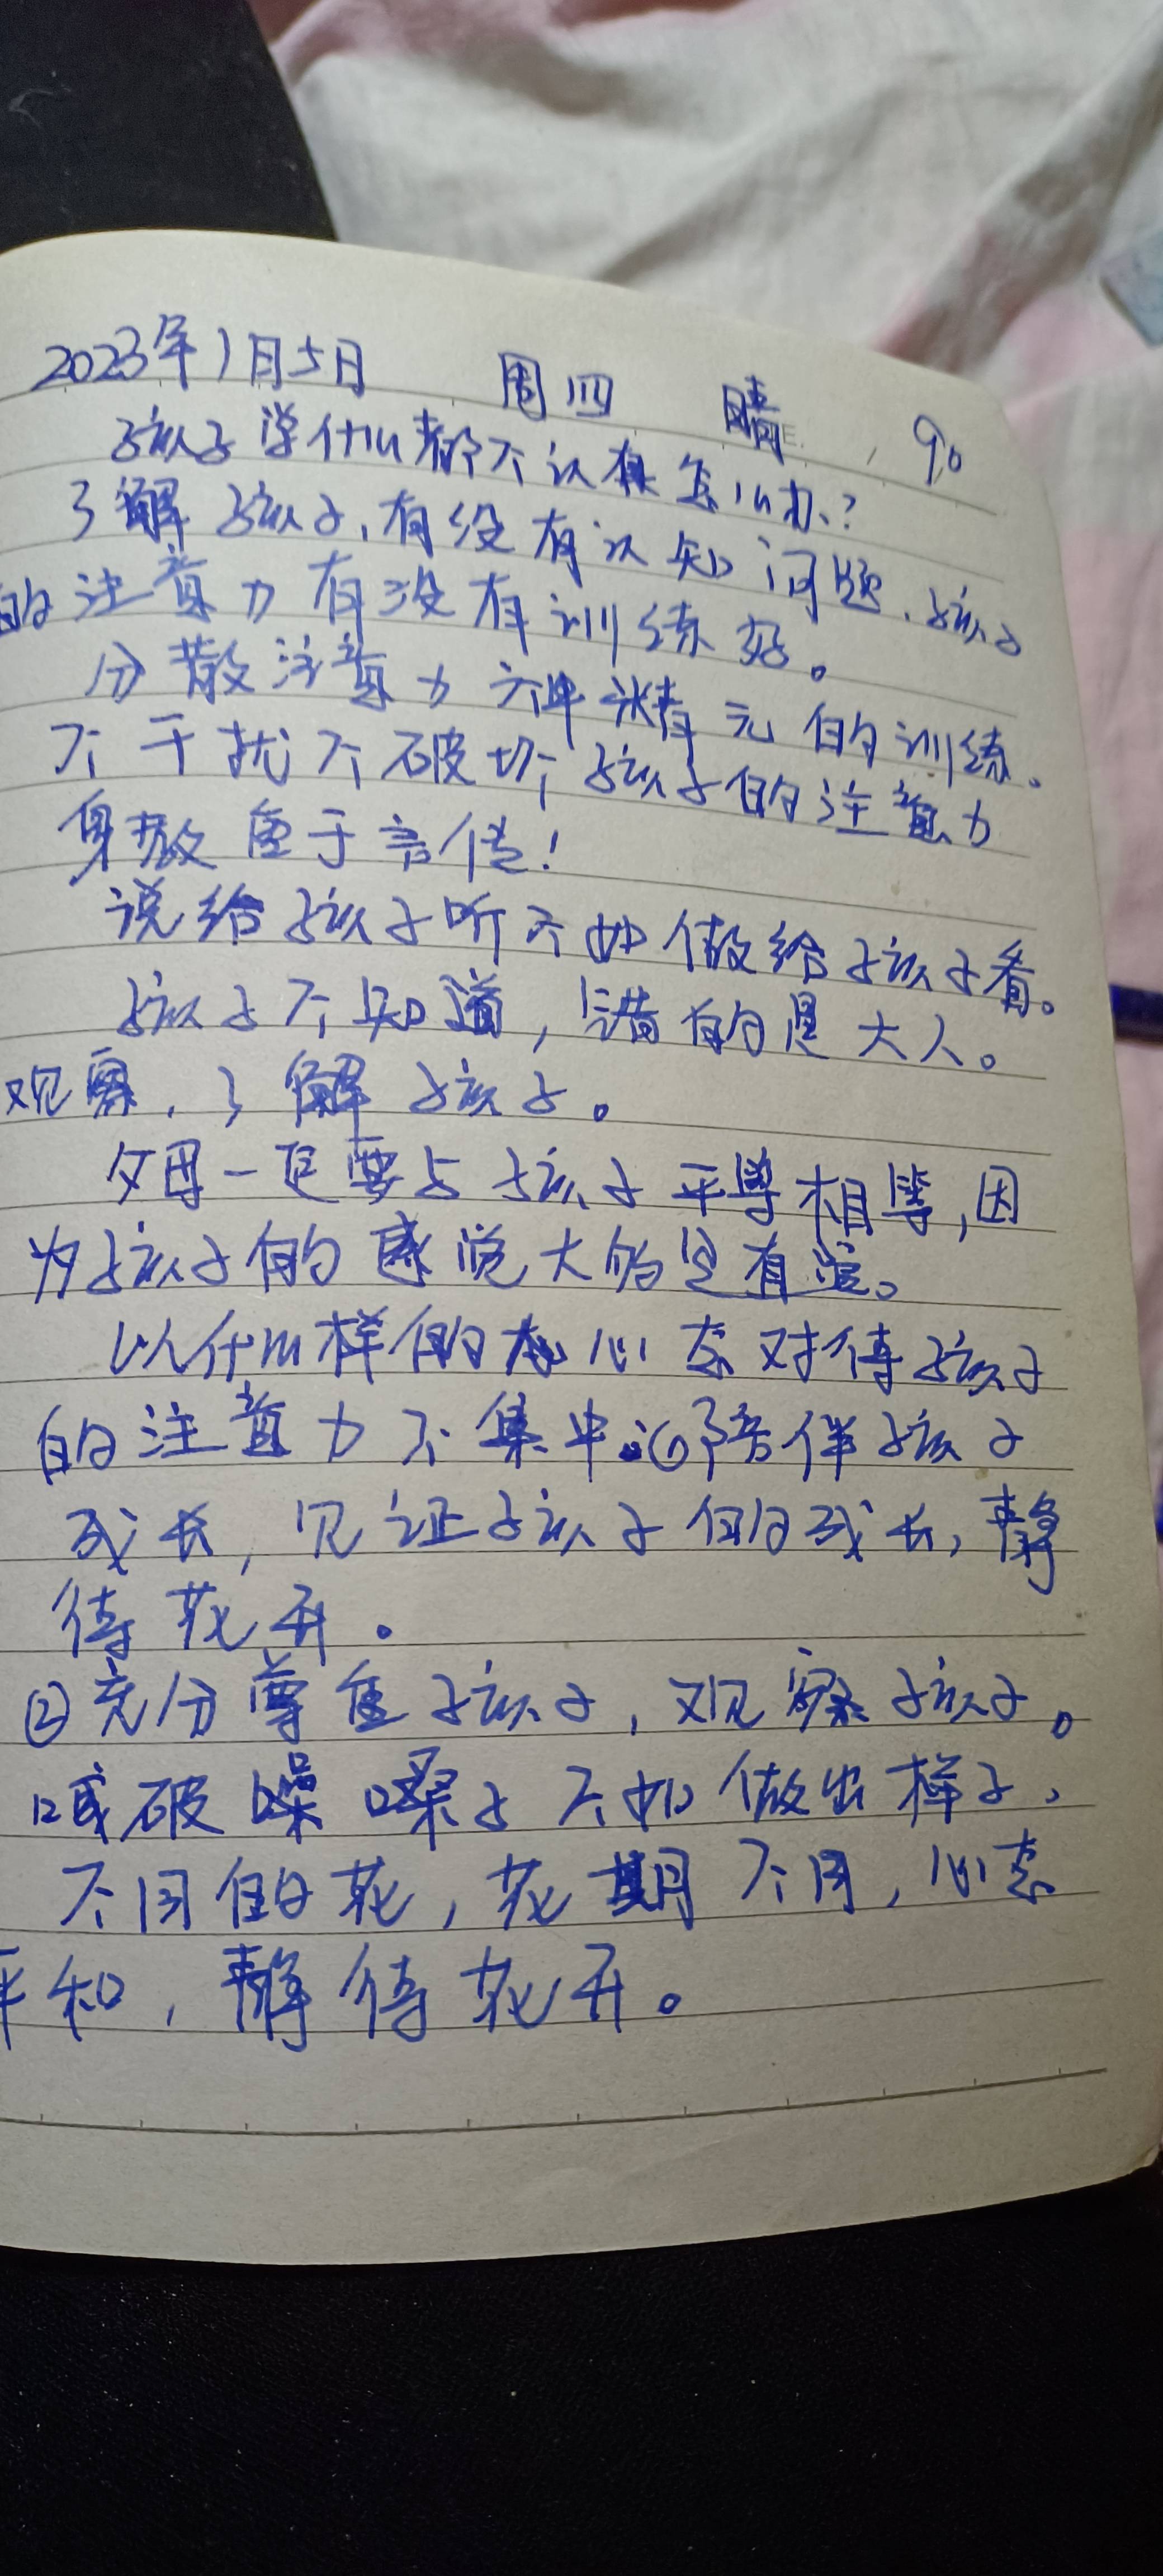 2023年1月5日 周四 晴 90
孩子学什么都不认真怎么办?
了解孩子,有没有认知问题、孩子
的注意力有没有训练好。
分散注意力 元的训练。
不干扰不破坏孩子的注意力
身教重于言传!
说给孩子听不如做给孩子看。
孩子不知道,错的是大人。
观察、了解孩子。
父母一定要与孩子平等相等,因
为孩子的感觉大的是有误。
以什么样的心态对待孩子
的注意力不集中。①陪伴孩子
成长,见证孩子的成长,静
待花开。
②充分尊重孩子,观察孩子。
喊破嗓子不如做出样子、
不同的花,花期不同,心态
平和,静待花开。